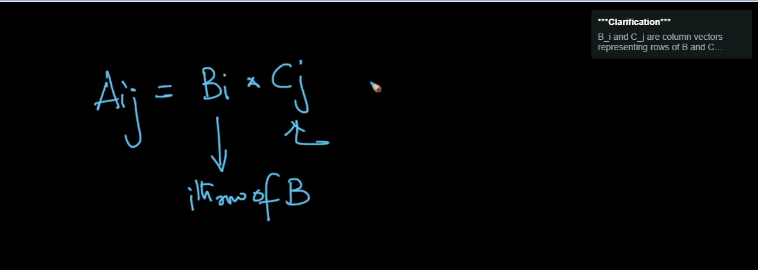 ***Clarification***
B_i and C_j are column vectors
representing rows of B and C...
Aij = Bi × Cj
ith row of B